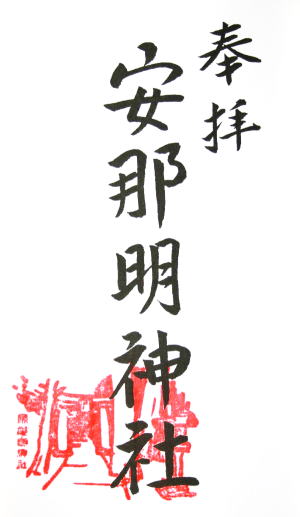 奉拝
安那明神社